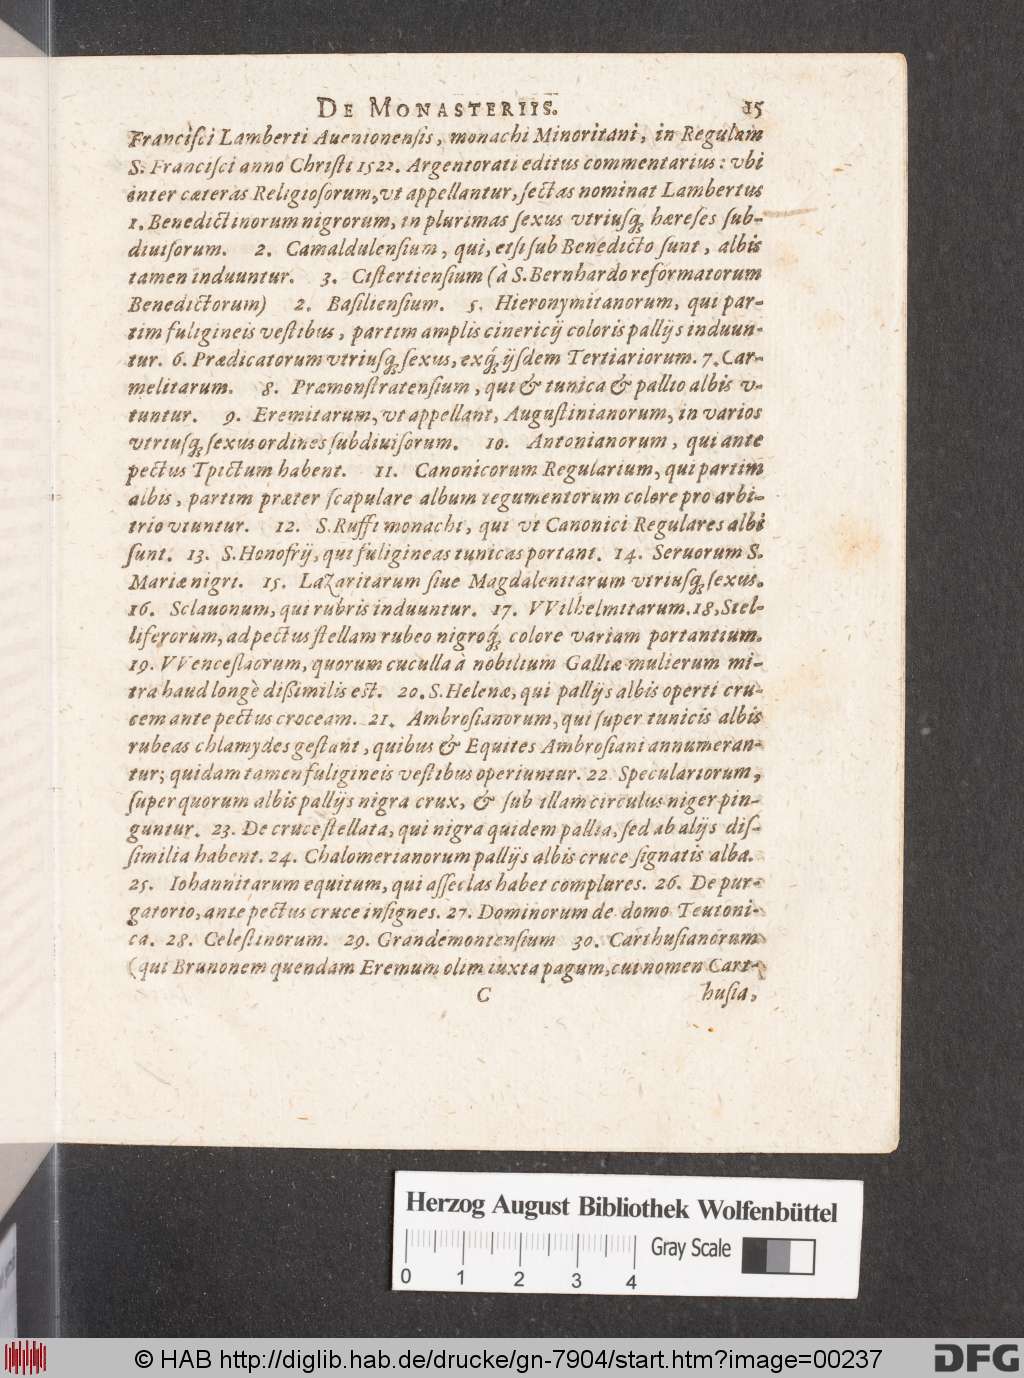 DE MONASTERIIS. 15
Franciſci Lamberti Auenionenſis, monachi Minoritani, in Regulam
S. Franciſci anno Chriſti 1522. Argentorati editus commentarius: vbi
inter cæteras Religioſorum, vt appellantur, ſectas nominat Lambertus
1. Benedictinorum nigrorum, in plurimas ſexus vtriuſq́; hæreſes ſub-
diuiſorum. 2. Camaldulenſium, qui, etſi ſub Benedicto ſunt, albis
tamen induuntur. 3. Ciſtertienſium (à S. Bernhardo reformatorum
Benedictorum) 2. Baſilienſium. 5. Hieronymitanorum, qui par-
tim fuligineis veſtibus, partim amplis cinericij coloris pallijs induun-
tur. 6. Prædicatorum vtriuſq́; ſexus, exq́; ijſdem Tertiariorum. 7. Car-
melitarum. 8. Præmonſtratenſium, qui & tunica & pallio albis v-
tuntur. 9. Eremitarum, vt appellant, Auguſtinianorum, in varios
vtriuſq́; ſexus ordines ſubdiuiſorum. 10. Antonianorum, qui ante
pectus T pictum habent. 11. Canonicorum Regularium, qui partim
albis, partim præter ſcapulare album tegumentorum colore pro arbi-
trio vtuntur. 12. S. Ruffi monachi, qui vt Canonici Regulares albi
ſunt. 13. S. Honofrij, qui fuligineas tunicas portant. 14. Seruorum S.
Mariæ nigri. 15. Lazaritarum ſiue Magdalenitarum vtriuſq́; ſexus.
16. Sclauonum, qui rubris induuntur. 17. VVilhelmitarum. 18, Stel-
liferorum, ad pectus ſtellam rubeo nigroq́; colore variam portantium.
19. VVenceſlaorum, quorum cuculla à nobilium Galliæ mulierum mi-
tra haud longè diſsimilis eſt. 20. S. Helenæ, qui pallijs albis operti cru-
cem ante pectus croceam. 21. Ambroſianorum, qui ſuper tunicis albis
rubeas chlamydes geſtant, quibus & Equites Ambroſiani annumeran-
tur; quidam tamen fuligineis veſtibus operiuntur. 22 Speculariorum,
ſuper quorum albis pallijs nigra crux, & ſub illam circulus niger pin-
guntur. 23. De cruce ſtellata, qui nigra quidem pallia, ſed ab alijs diſ-
ſimilia habent. 24. Chalomerianorum pallijs albis cruce ſignatis alba.
25. Iohannitarum equitum, qui aſſeclas habet complures. 26. De pur-
gatorio, ante pectus cruce inſignes. 27. Dominorum de domo Teutoni-
ca. 28. Celeſtinorum. 29. Grandemontenſium 30. Carthuſianorum
(qui Brunonem quendam Eremum olim iuxta pagum, cui nomen Cart-
C huſia,
Herzog August Bibliothek Wolfenbüttel
Gray Scale
0 1 2 3 4
© HAB http://diglib.hab.de/drucke/gn-7904/start.htm?image=00237
DFG